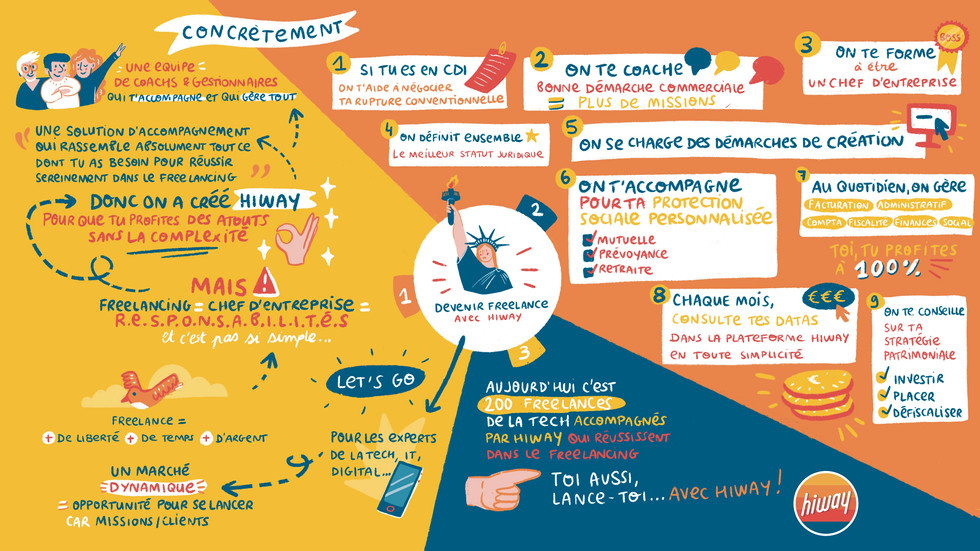 CONCRÈTEMENT
UNE ÉQUIPE
DE COACHS & GESTIONNAIRES
QUI T'ACCOMPAGNE ET QUI GÈRE TOUT
"UNE SOLUTION D'ACCOMPAGNEMENT
QUI RASSEMBLE ABSOLUMENT TOUT CE
DONT TU AS BESOIN POUR RÉUSSIR
SEREINEMENT DANS LE FREELANCING"
DONC ON A CRÉÉ HIWAY
POUR QUE TU PROFITES DES ATOUTS
SANS LA COMPLEXITÉ
MAIS !
FREELANCING = CHEF D'ENTREPRISE =
R.E.S.P.O.N.S.A.B.I.L.I.T.É.S
et c'est pas si simple...
FREELANCE =
+ DE LIBERTÉ + DE TEMPS + D'ARGENT
UN MARCHÉ
DYNAMIQUE
= OPPORTUNITÉ POUR SE LANCER
CAR MISSIONS/CLIENTS
LET'S GO
POUR LES EXPERTS
DE LA TECH, IT,
DIGITAL...
1
2
3
DEVENIR FREELANCE
AVEC HIWAY
1 SI TU ES EN CDI
ON T'AIDE À NÉGOCIER
TA RUPTURE CONVENTIONNELLE
2 ON TE COACHE
BONNE DÉMARCHE COMMERCIALE
= PLUS DE MISSIONS
3 ON TE FORME
à être
UN CHEF D'ENTREPRISE
BOSS
4 ON DÉFINIT ENSEMBLE
LE MEILLEUR STATUT JURIDIQUE
5 ON SE CHARGE DES DÉMARCHES DE CRÉATION
6 ON T'ACCOMPAGNE
POUR TA PROTECTION
SOCIALE PERSONNALISÉE
MUTUELLE
PRÉVOYANCE
RETRAITE
7 AU QUOTIDIEN, ON GÈRE
FACTURATION ADMINISTRATIF
COMPTA FISCALITÉ FINANCES SOCIAL
TOI, TU PROFITES
À 100%
8 CHAQUE MOIS,
CONSULTE TES DATAS
DANS LA PLATEFORME HIWAY
EN TOUTE SIMPLICITÉ
€€€
9 ON TE CONSEILLE
SUR TA
STRATÉGIE
PATRIMONIALE
INVESTIR
PLACER
DÉFISCALISER
AUJOURD'HUI C'EST
200 FREELANCES
DE LA TECH ACCOMPAGNÉS
PAR HIWAY QUI RÉUSSISSENT
DANS LE FREELANCING
TOI AUSSI,
LANCE-TOI... AVEC HIWAY !
hiway